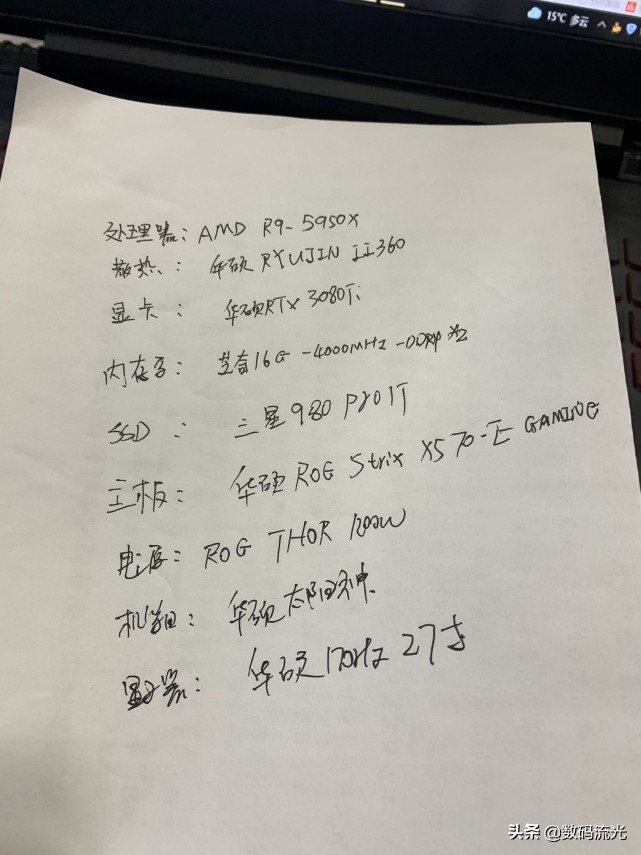 15℃ 多云
处理器: AMD R9-5950X
散热: 华硕 RYUJIN II 360
显卡: 华硕RTX 3080Ti
内存: 16G -4000MHz
SSD: 三星 980 PRO 1T
主板: 华硕 ROG Strix X570-E GAMING
电源: ROG THOR 1200W
机箱: 华硕 太阳神
显示器: 华硕 170Hz 27寸
头条 @数码流光